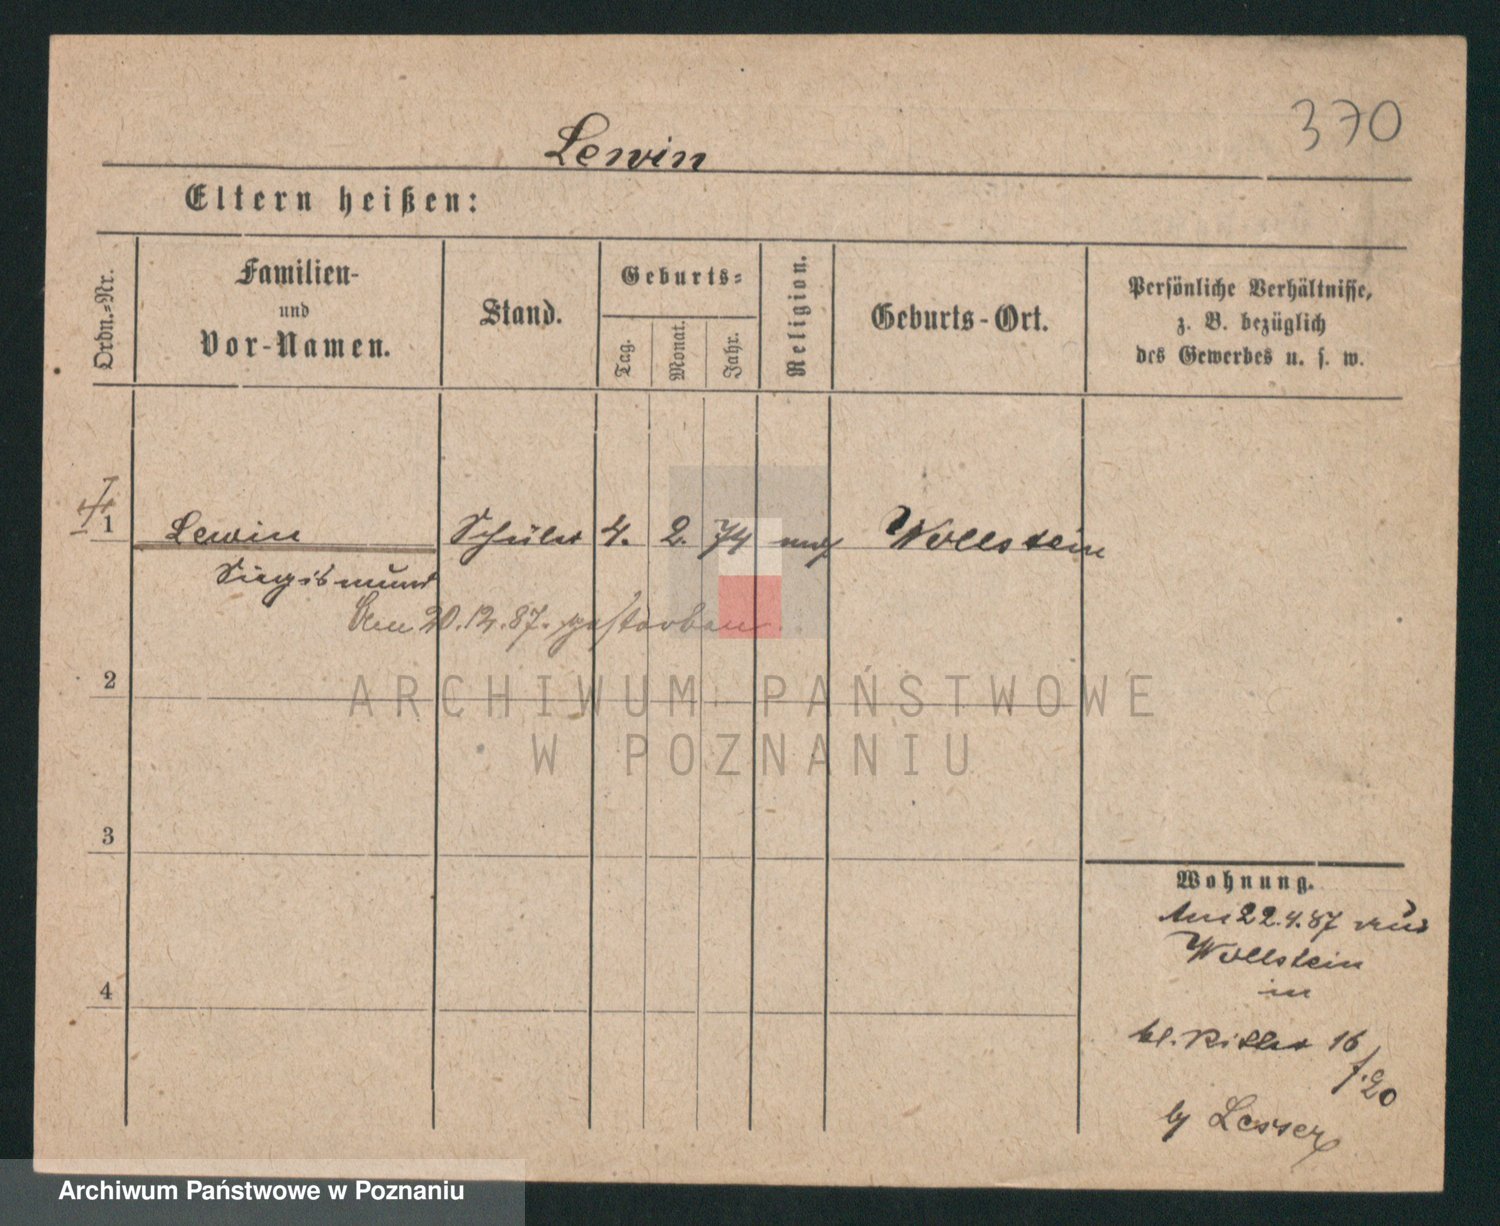 370
Lewin
Eltern heißen:
Ordn.-Nr.
Familien-
und
Vor-Namen.
Stand.
Geburts-
Tag.
Monat.
Jahr.
Religion.
Geburts-Ort.
Persönliche Verhältnisse,
z. B. bezüglich
des Gewerbes u. s. w.
1 Lewin Schüler 4. 2. 74 mos Wollstein
Siegismund
Am 20.12.87. gestorben
2
ARCHIWUM PAŃSTWOWE
W POZNANIU
3
Wohnung.
Am 22.4.87 aus
Wollstein
in
4
kl. Ritter 16
f. 20
by Lesser
Archiwum Państwowe w Poznaniu